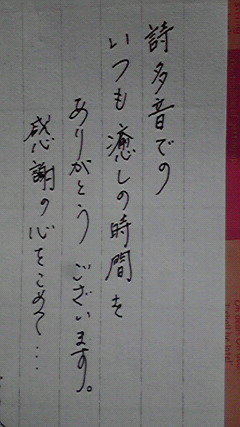 詩多音での
いつも癒しの時間を
ありがとうございます。
感謝の心をこめて…